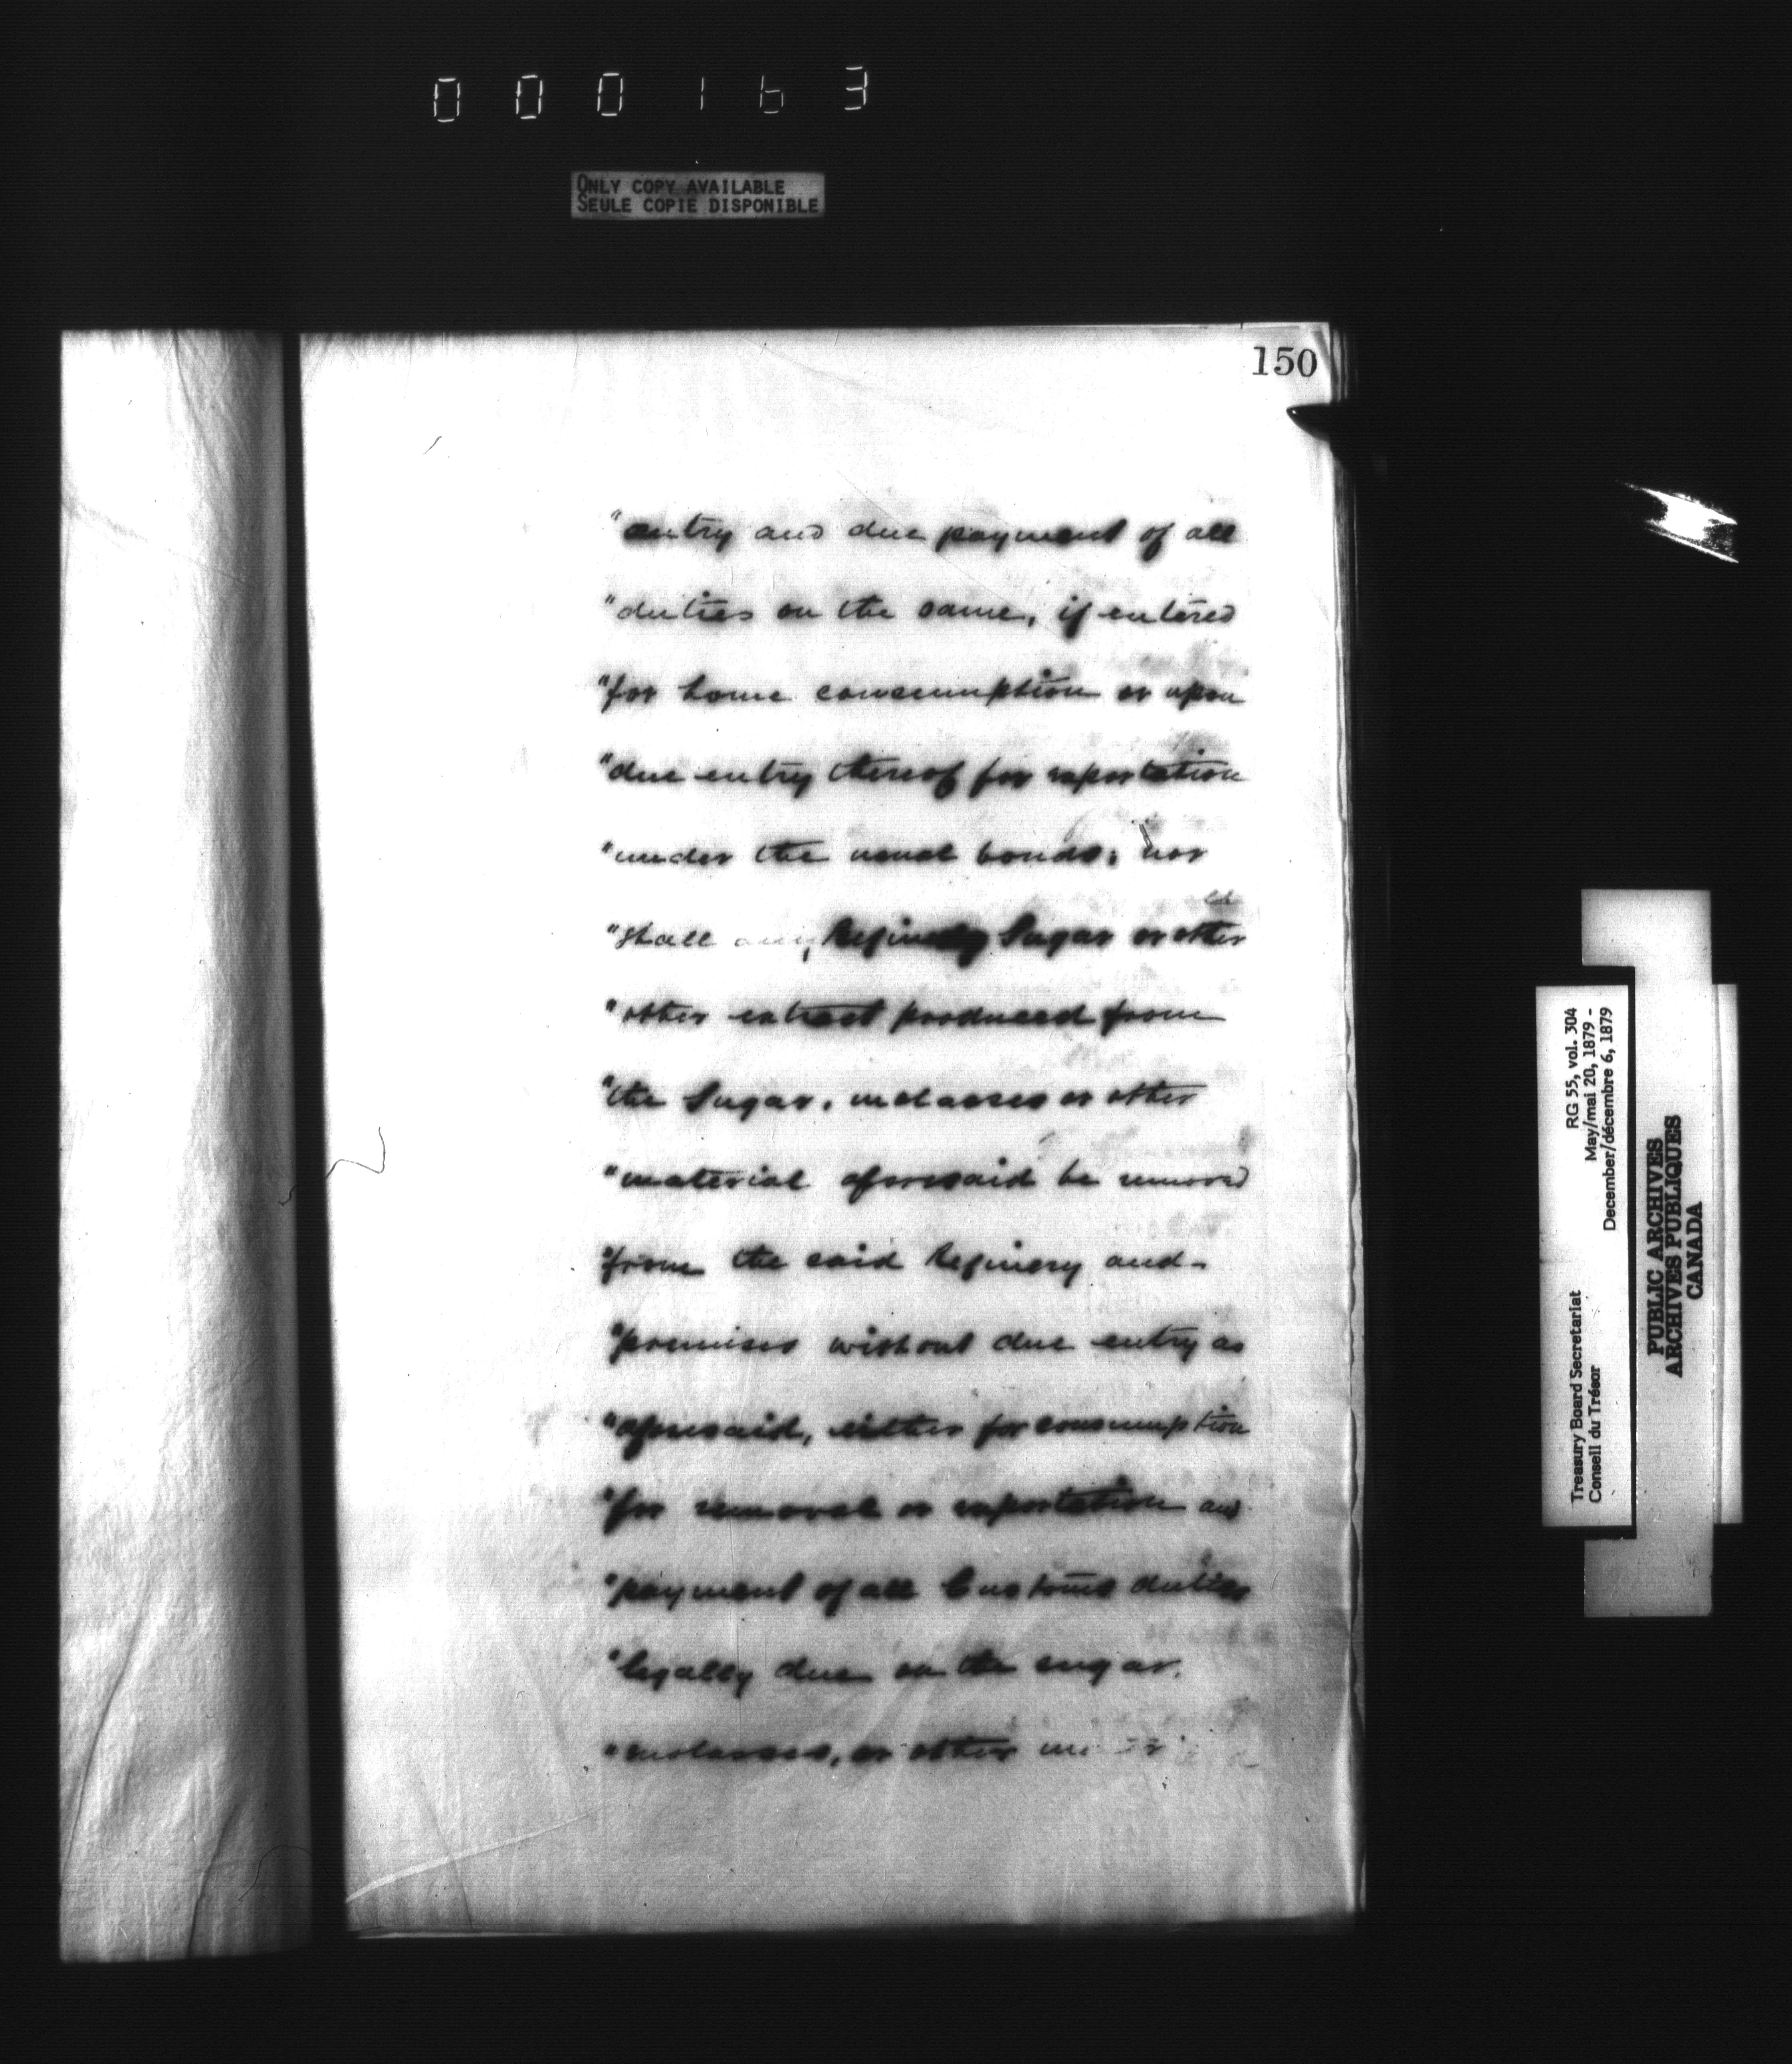 000163
ONLY COPY AVAILABLE
SEULE COPIE DISPONIBLE
150
"entry and due payment of all
"duties on the same, if entered
"for home consumption or upon
"due entry thereof for exportation
"under the usual bonds; nor
"shall any Sugar or other
"other extract produced from
"the Sugar, molasses or other
"material aforesaid be removed
"from the said Refinery and
"premises without due entry as
"aforesaid, either for consumption
"for removal or exportation and
"payment of all Customs duties
"legally due on the sugar,
"molasses, or other
Treasury Board Secretariat RG 55, vol. 304
Conseil du Trésor May/mai 20, 1879 -
December/décembre 6, 1879
PUBLIC ARCHIVES
ARCHIVES PUBLIQUES
CANADA